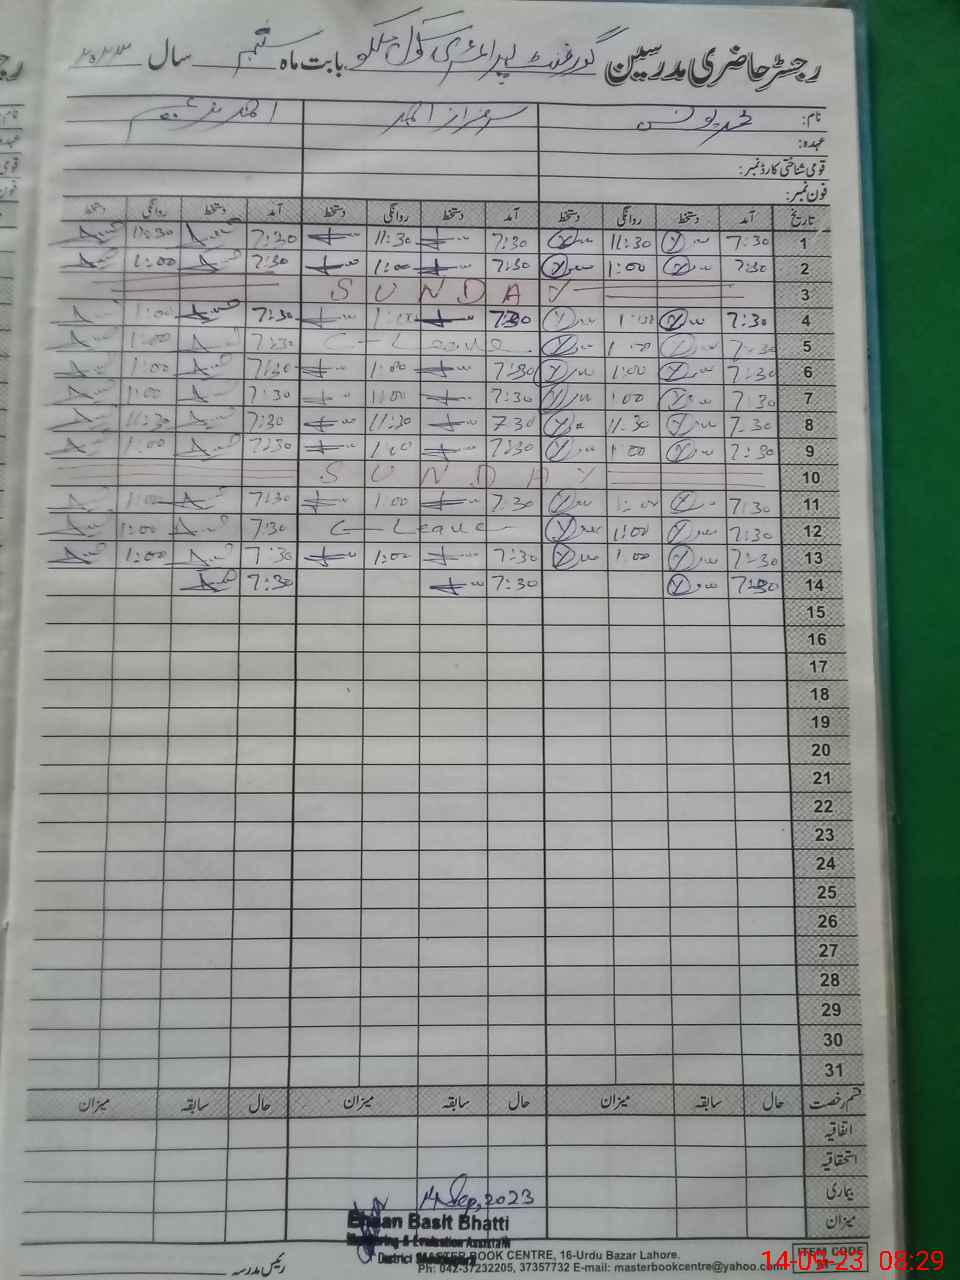 رجسٹر حاضری مدرسین گورنمنٹ پرائمری سکول بابت ماہ ستمبر سال ۲۰۲۳
نام: محمد یونس سرفراز احمد
عہدہ:
قومی شناختی کارڈ نمبر:
فون نمبر:
تاریخ آمد دستخط روانگی دستخط آمد دستخط روانگی دستخط آمد دستخط روانگی دستخط
1 7:30 11:30 7:30 11:30 7:30 11:30
2 7:30 1:00 7:30 1:00 7:30 1:00
3 SUNDAY
4 7:30 1:00 7:30 1:00 7:30 1:00
5 7:30 1:00 C-Leave 7:30 1:00
6 7:30 1:00 7:30 1:00 7:30 1:00
7 7:30 1:00 7:30 1:00 7:30 1:00
8 7:30 11:30 7:30 11:30 7:30 11:30
9 7:30 1:00 7:30 1:00 7:30 1:00
10 SUNDAY
11 7:30 1:00 7:30 1:00 7:30 1:00
12 7:30 1:00 C-Leave 7:30 1:00
13 7:30 1:00 7:30 1:00 7:30 1:00
14 7:30 7:30 7:30
15
16
17
18
19
20
21
22
23
24
25
26
27
28
29
30
31
قسم رخصت حال سابقہ میزان حال سابقہ میزان حال سابقہ میزان
اتفاقیہ
استحقاقیہ
بیماری
میزان
14 Sep, 2023
Ehsan Basit Bhatti
Monitoring & Evaluation Assistant
District
رئیس مدرسہ
MASTER BOOK CENTRE, 16-Urdu Bazar Lahore.
Ph: 042-37232205, 37357732 E-mail: masterbookcentre@yahoo.com
ITEM CODE
14-09-23 08:29